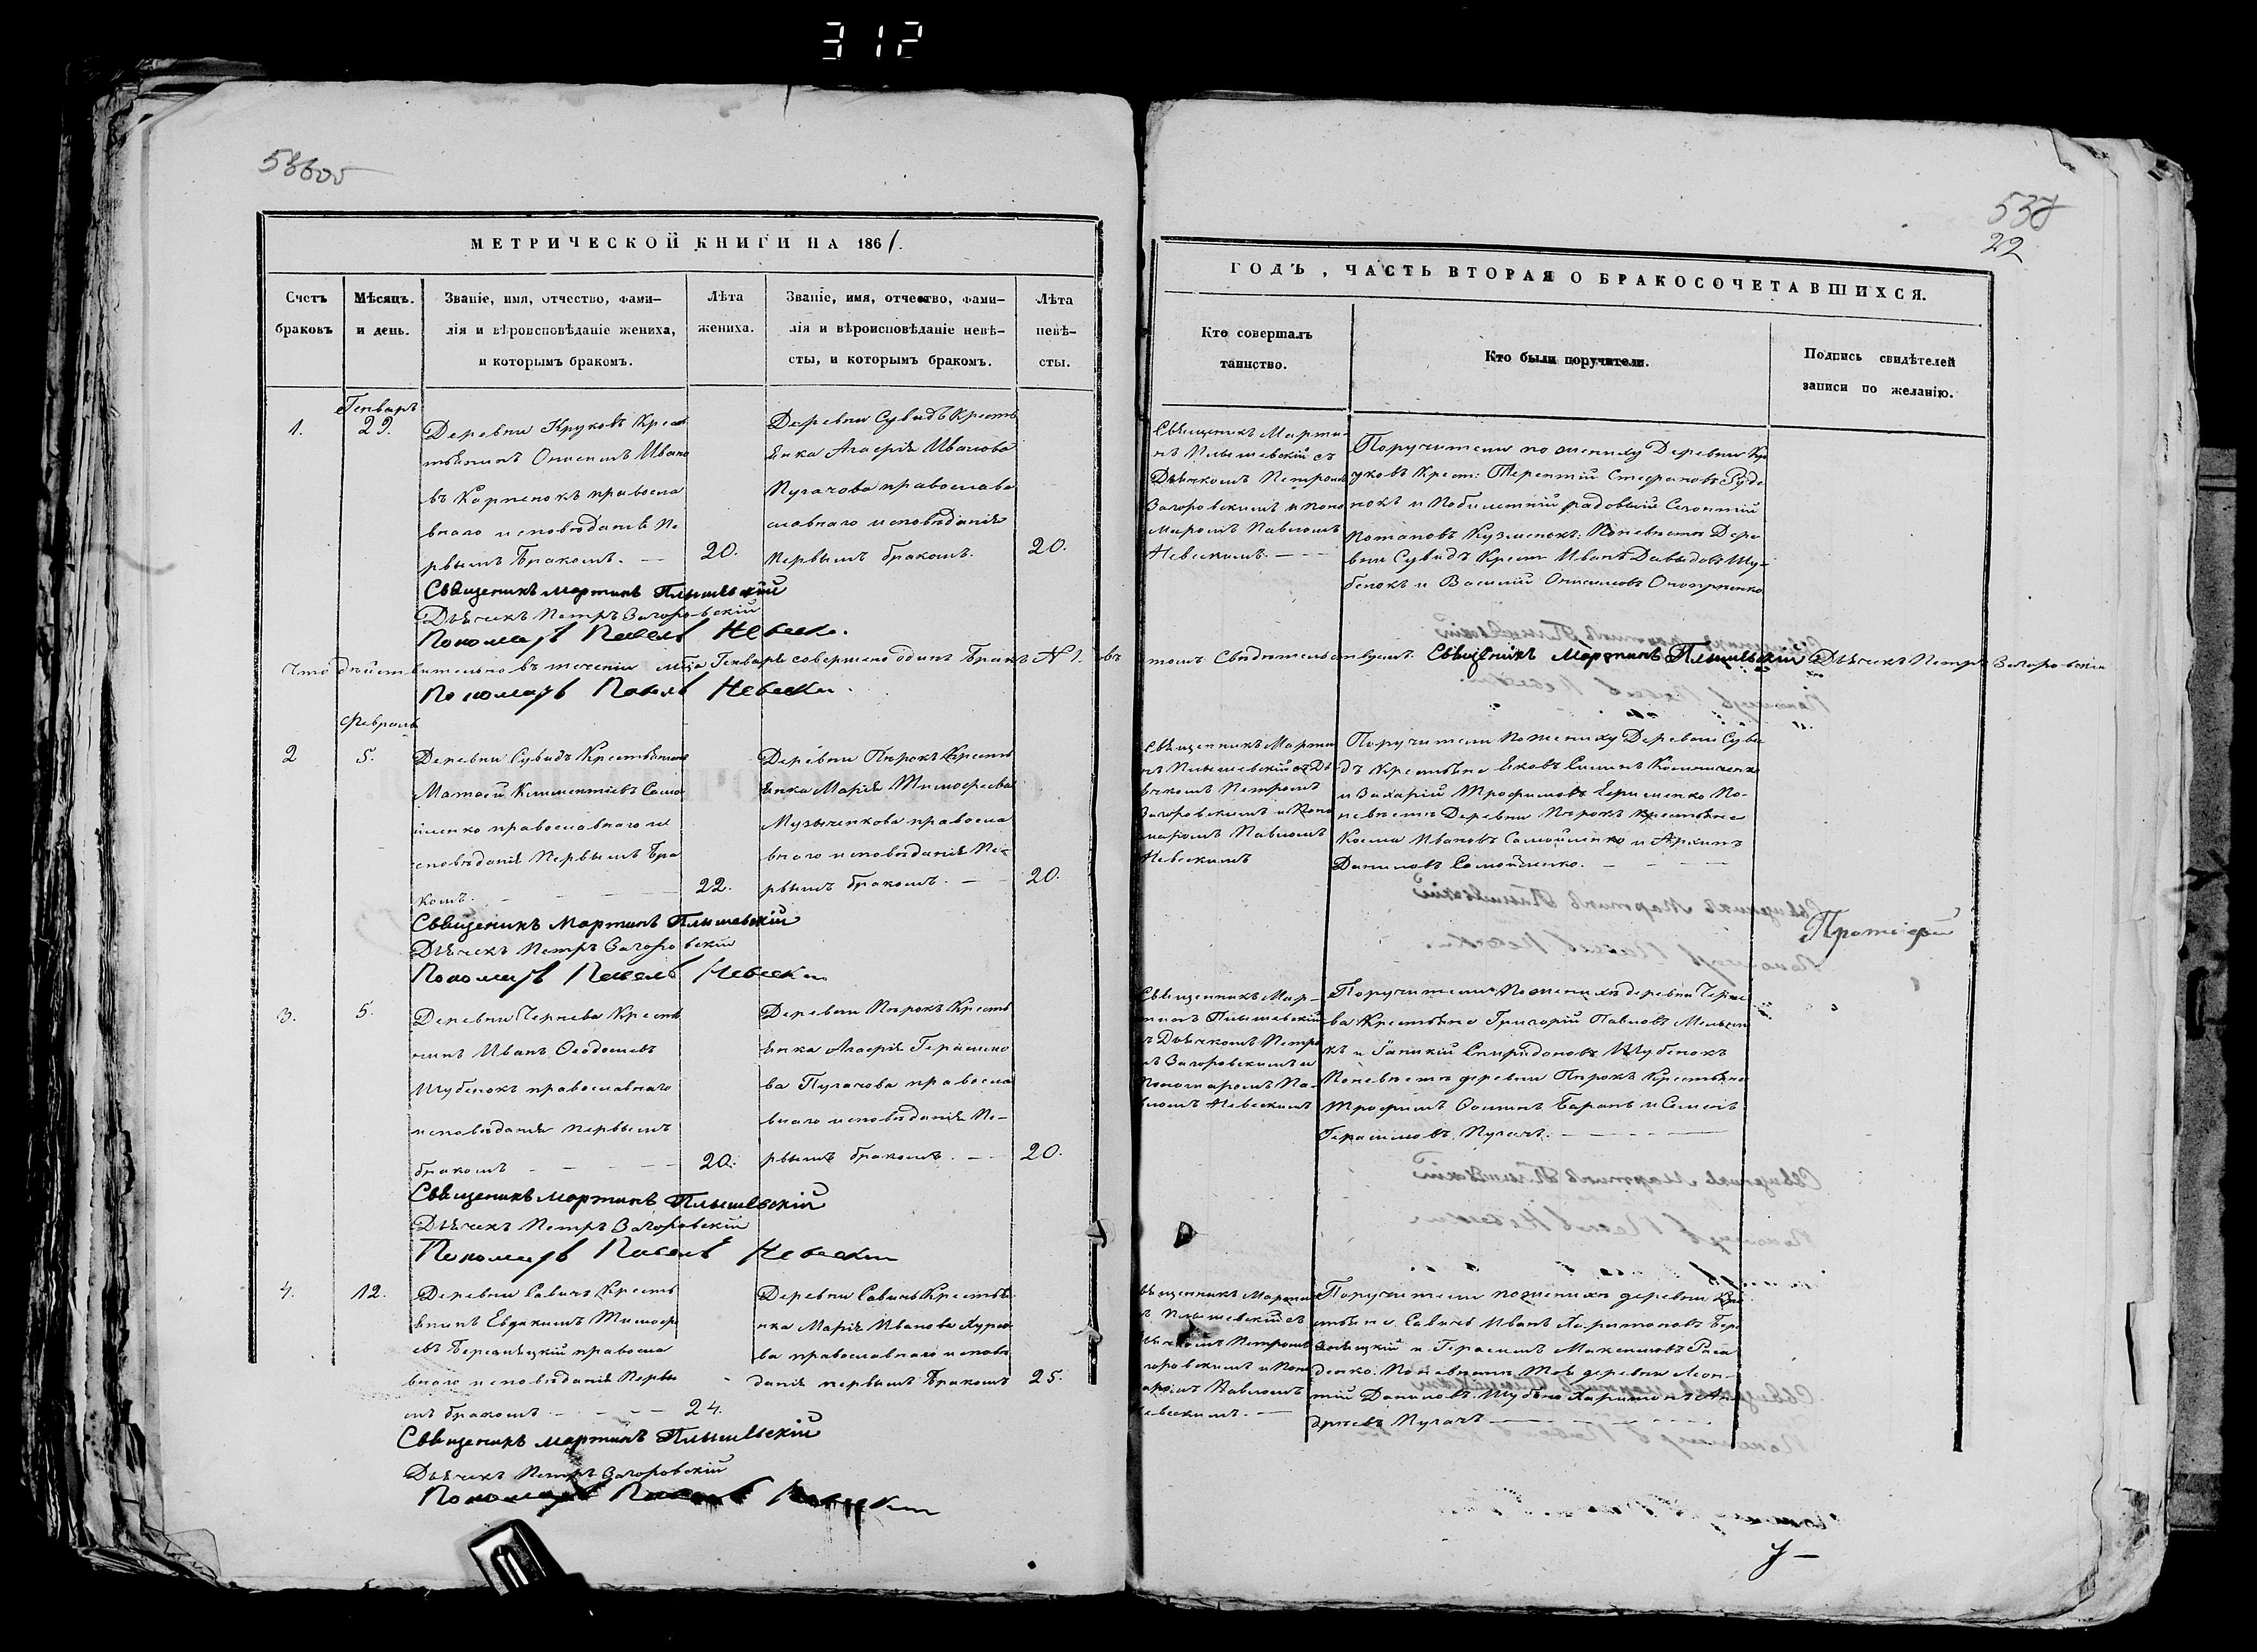 312
538об
МЕТРИЧЕСКОЙ КНИГИ НА 1861.
Счетъ браковъ
Мѣсяцъ. и день.
Званіе, имя, отчество, фами-
лія и вѣроисповѣданіе жениха,
и которымъ бракомъ.
Лѣта жениха.
Званіе, имя, отчество, фами-
лія и вѣроисповѣданіе невѣ-
сты, и которымъ бракомъ.
Лѣта невѣ-
сты.
Генварь
1.
29.
Деревни Круковъ Крест
янинъ Онисимъ Ивано
въ Карпенокъ правосла
внаго исповѣданія пе
рвымъ бракомъ. —
20.
Деревни Сувидъ Кресть
янка Агафія Иванова
Пугачова правосла
славнаго исповѣданія
первымъ бракомъ.
20.
Священикъ Мартинъ Плышевскій
Дьячекъ Петръ Загоровскій
Пономарь Павелъ Невески.
Что дѣйствительно въ теченіи м-ца Генваря совершено одинъ бракъ № 1. въ
Пономарь Павелъ Невески.
Февраль
2
5.
Деревни Сувидъ Крестьянинъ
Матѳей Климентіевъ Само
йленко православнаго и
сповѣданія первымъ бра
комъ. —
22.
Деревни Пырокъ Кресть
янка Марія Тимофеева
Музыченкова правосла
внаго исповѣданія пе-
рвымъ бракомъ. —
20.
Священикъ Мартинъ Плышевскій
Дьячекъ Петръ Загоровскій
Пономарь Павелъ Невески
3.
5.
Деревни Чернева Кресть
нинъ Иванъ Ѳеодосіевъ
Шубенокъ православнаго
исповѣданія первымъ
бракомъ —
20.
Деревни Пырокъ Кресть
янка Агафія Герасимо
ва Пугачова правосла
внаго исповѣданія пе-
рвымъ бракомъ. —
20.
Священикъ Мартинъ Плышевскій
Дьячекъ Петръ Загоровскій
Пономарь Павелъ Невески
4.
12.
Деревни Савичъ Кресть
янинъ Евдакимъ Тимофе
евъ правосла
внаго исповѣданія первы
мъ бракомъ. —
24.
Деревни Савичъ Крестья
нка Марія Иванова
ва православнаго исповѣ
данія первымъ бракомъ
25.
Священикъ Мартинъ Плышевскій
Дьячекъ Петръ Загоровскій
Пономарь Павелъ Невески
538
22
ГОДЪ, ЧАСТЬ ВТОРАЯ О БРАКОСОЧЕТАВШИХСЯ.
Кто совершалъ
таинство.
Кто были поручители.
Подпись свидѣтелей
записи по желанію.
Священикъ Марти-
нъ Плышевскій съ
Дьячкомъ Петромъ
Загоровскимъ и поно
маромъ Павломъ
Невескимъ. —
Поручители по жениху Деревни Кру
уковъ Крест: Терентій Стефановъ Руде
нокъ и рядовый
Потаповъ Кузменокъ: По невесте Дере
вни Сувидъ Крест Иванъ Давидовъ Шу-
бенокъ и Василій Онисимовъ Оноприенко
томъ Свѣдетельствуемъ: Священикъ Мартинъ Плышевскій Дьячекъ Петръ Загоровскій
Священникъ Марти
нъ Плышевскій съ Дь
ячкомъ Петромъ
Загоровскимъ и Поно
маромъ Павломъ
Невескимъ
Поручители По жениху Деревни Суви
дъ Крестьяне Яковъ
и Захарій Трофимовъ Ефименко По-
невесте Деревни Пырокъ Крестьяне
Косма Ивановъ Самойленко и Архипъ
Даниловъ Самойленко. —
Протоіерей
Священникъ Мар-
тинъ Плышевскій
съ Дьячкомъ Петро
мъ Загоровскимъ и
Пономаромъ Па-
вломъ Невескимъ
Поручители По женихѣ деревни Черне
ва Крестьяне Григорій Павловъ
къ и Спиридоновъ Шубенокъ
По невесте деревни Пырокъ Крестьяне
Трофимъ Баранъ и Семенъ
Герасимовъ Пугачъ. —
Священникъ Марти
нъ Плышевскій съ
Дьячкомъ Петромъ
Загоровскимъ и Поно
маромъ Павломъ
Невескимъ. —
Поручители по женихѣ деревни Кре
стьяне Савичъ Иванъ Харитоновъ
и Герасимъ Максимовъ
денко. По невестѣ той деревни Леон-
тій Даниловъ Шубенко Харитонъ Ан
дреевъ Пугачъ —